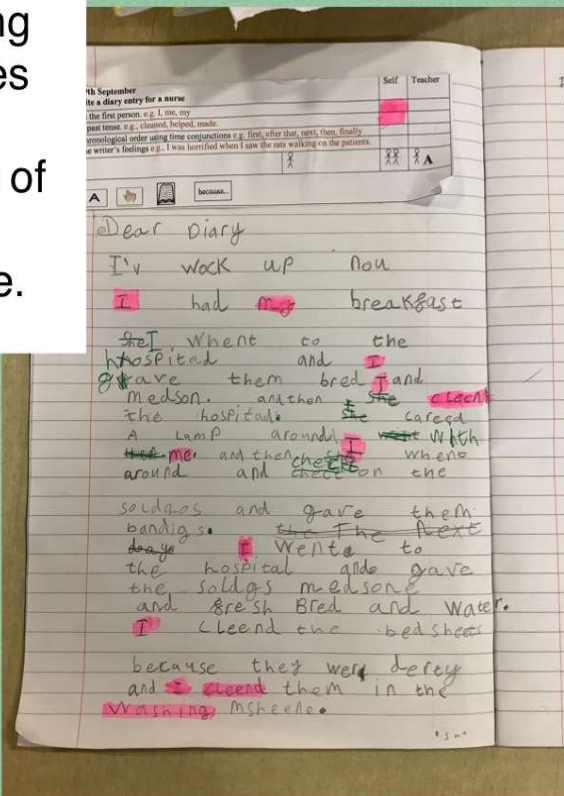 ng
es
of
e.
Self Teacher
th September
ite a diary entry for a nurse
the first person. e.g. I, me, my
past tense. e.g., cleaned, helped, made.
ronological order using time conjunctions e.g. first, after that, next, then, finally
e writer's feelings e.g., I was horrified when I saw the rats walking on the patients.
A
A
because...
Dear Diary
I'v wock up nou
I had my breakfast
She I whent to the
hospitad and I
gave them bred I and
medson. and then She cleend
the hospitad. She careed
A LamP around I with
me. and then check wheno
around and check on the
soldgos and gave them
bandigs. the The Next
days I wente to
the hospital ando gave
the soldgs medsone
and fresh Bred and water.
I cleend the bedsheets
because they were derty
and I cleend them in the
washing msheene.